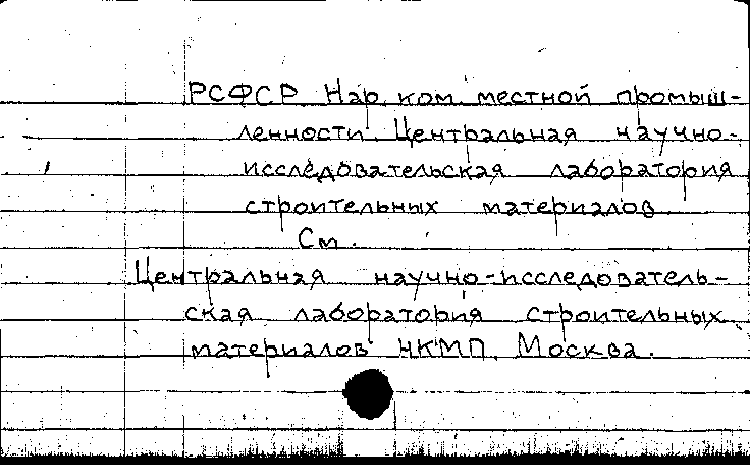 РСФСР Нар. ком. местной промыш-
ленности. Центральная научно-
исследовательская лаборатория
строительных материалов
См.
Центральная научно-исследователь-
ская лаборатория строительных
материалов НКМП. Москва.